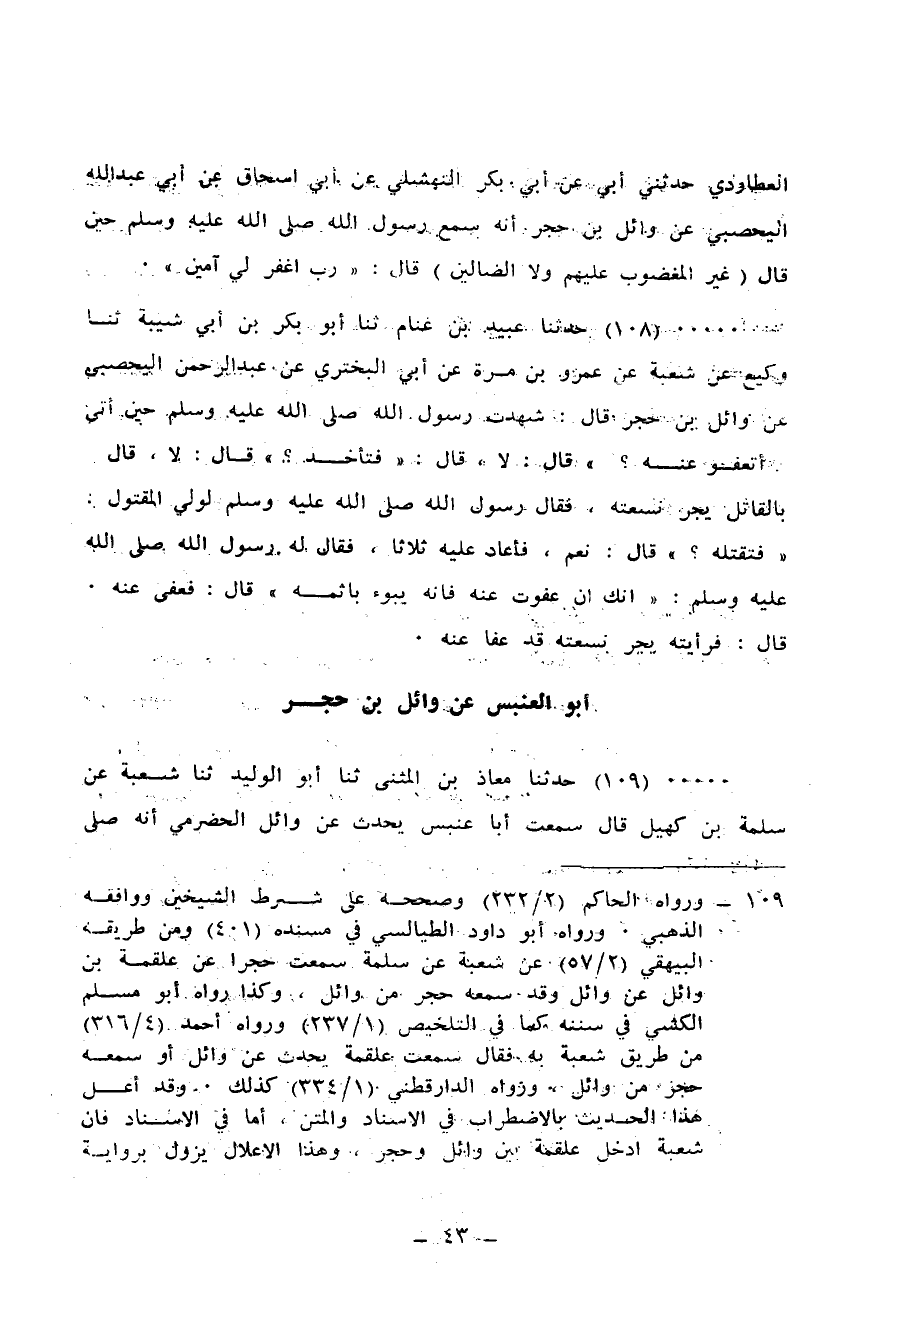 العطاردي حدثني أبي عن أبي بكر النهشلي عن أبي اسحاق عن أبي عبدالله
اليحصبي عن وائل بن حجر أنه سمع رسول الله صلى الله عليه وسلم حين
قال ( غير المغضوب عليهم ولا الضالين ) قال : « رب اغفر لي آمين » ٠
٠٠٠٠٠ (١٠٨) حدثنا عبيد بن غنام ثنا أبو بكر بن أبي شيبة ثنا
وكيع عن شعبة عن عمرو بن مرة عن أبي البختري عن عبدالرحمن اليحصبي
عن وائل بن حجر قال : شهدت رسول الله صلى الله عليه وسلم حين أتي
أتعفو عنه ؟ » قال : لا ، قال : « فتأخذ ؟ » قال : لا ، قال
بالقاتل يجر نسعته ، فقال رسول الله صلى الله عليه وسلم لولي المقتول :
« فتقتله ؟ » قال : نعم ، فأعاد عليه ثلاثا ، فقال له رسول الله صلى الله
عليه وسلم : « انك ان عفوت عنه فانه يبوء باثمه » قال : فعفى عنه ٠
قال : فرأيته يجر نسعته قد عفا عنه ٠
أبو العنبس عن وائل بن حجر
٠٠٠٠٠ (١٠٩) حدثنا معاذ بن المثنى ثنا أبو الوليد ثنا شعبة عن
سلمة بن كهيل قال سمعت أبا عنبس يحدث عن وائل الحضرمي أنه صلى
١٠٩ – ورواه الحاكم (٢٣٢/٢) وصححه على شرط الشيخين ووافقه
الذهبي ٠ ورواه أبو داود الطيالسي في مسنده (٤٠١) ومن طريقه
البيهقي (٥٧/٢) عن شعبة عن سلمة سمعت حجرا عن علقمة بن
وائل عن وائل وقد سمعه حجر من وائل ، وكذا رواه أبو مسلم
الكشي في سننه كما في التلخيص (٢٣٧/١) ورواه أحمد (٣١٦/٤)
من طريق شعبة به فقال سمعت علقمة يحدث عن وائل أو سمعه
حجر من وائل ، ورواه الدارقطني (٣٣٤/١) كذلك ٠ وقد أعل
هذا الحديث بالاضطراب في الاسناد والمتن ، أما في الاسناد فان
شعبة ادخل علقمة بين وائل وحجر ، وهذا الاعلال يزول برواية
– ٤٣ –